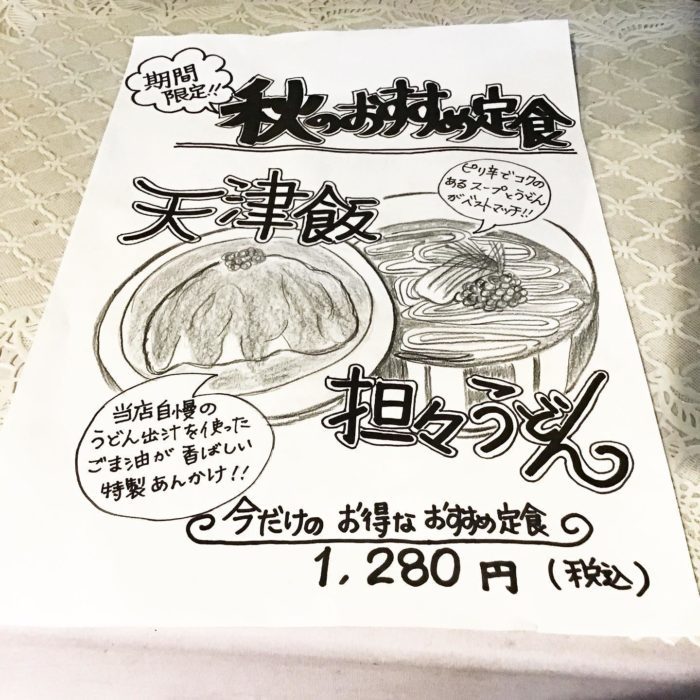 期間
限定!!
秋のおすすめ定食
天津飯
ピリ辛でコクの
あるスープとうどん
がベストマッチ!!
担々うどん
当店自慢の
うどん出汁を使った
ごま油が香ばしい
特製あんかけ!!
今だけの お得な おすすめ定食
1,280円 (税込)